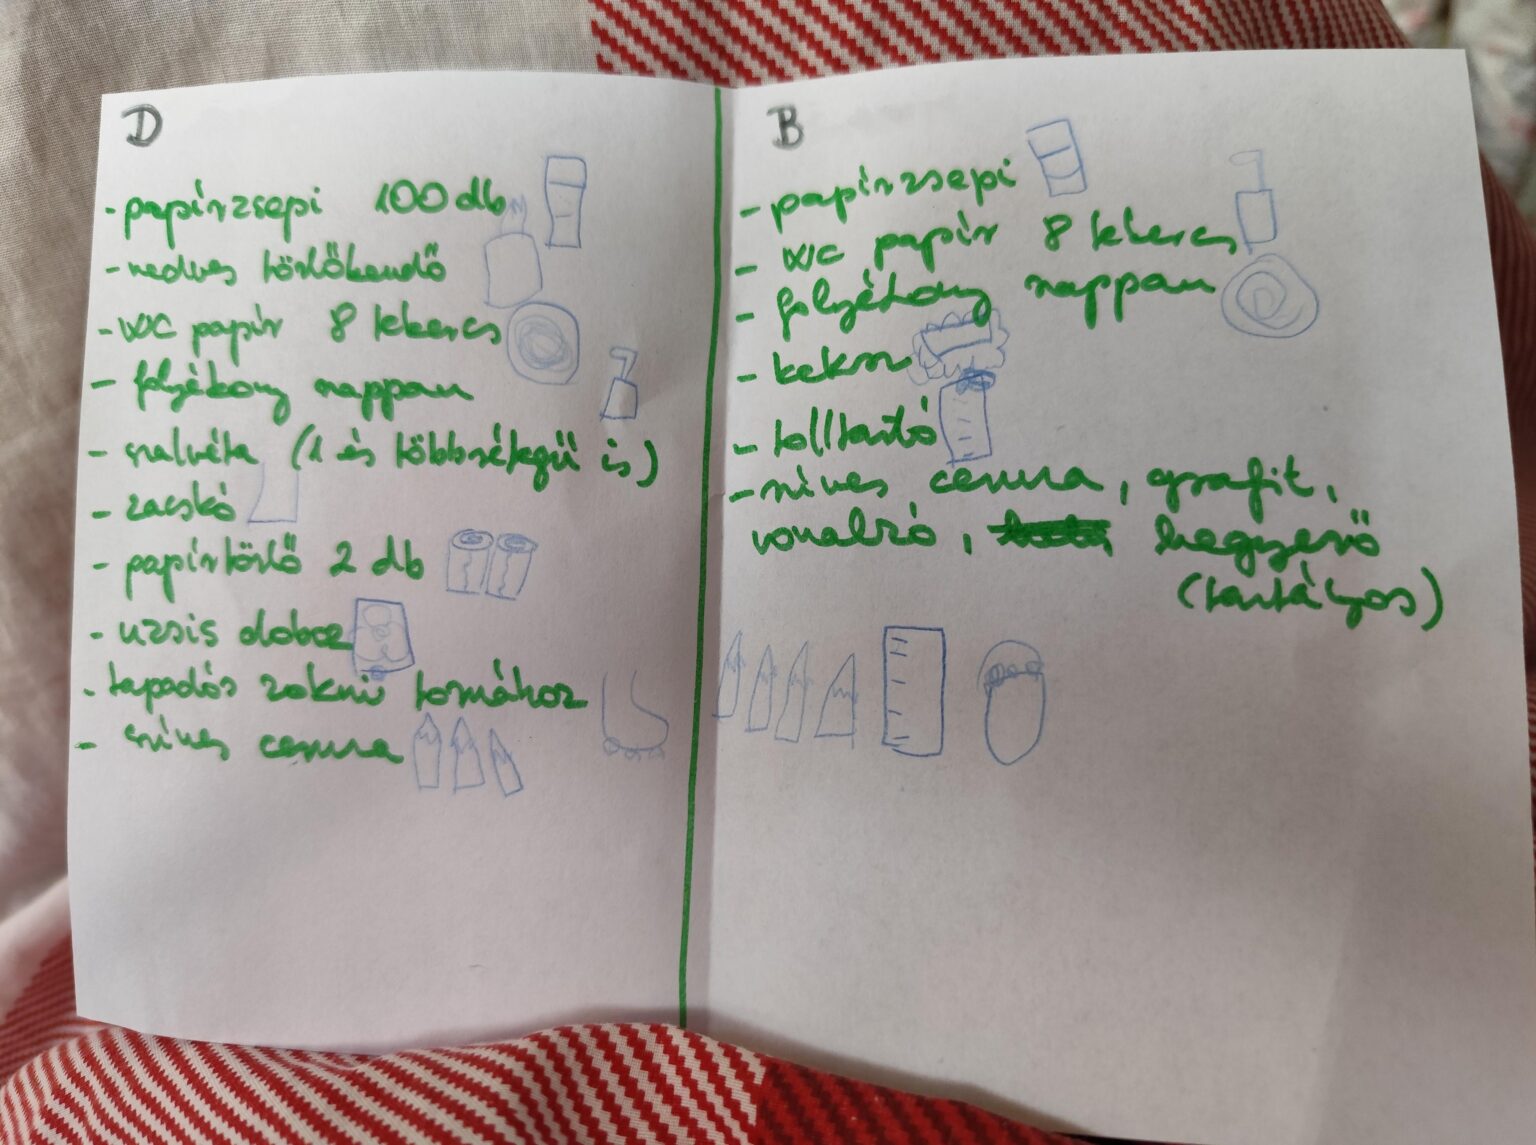 D
- papírzsepi 100 db
- nedves törlőkendő
- WC papír 8 tekercs
- folyékony szappan
- szalvéta (1 és többrétegű is)
- zacskó
- papírtörlő 2 db
- uzsis doboz
- tapadós zokni tornához
- színes ceruza
B
- papírzsepi
- WC papír 8 tekercs
- folyékony szappan
- keksz
- tolltartó
- színes ceruza, grafit,
vonalzó, hegyező
(tartályos)